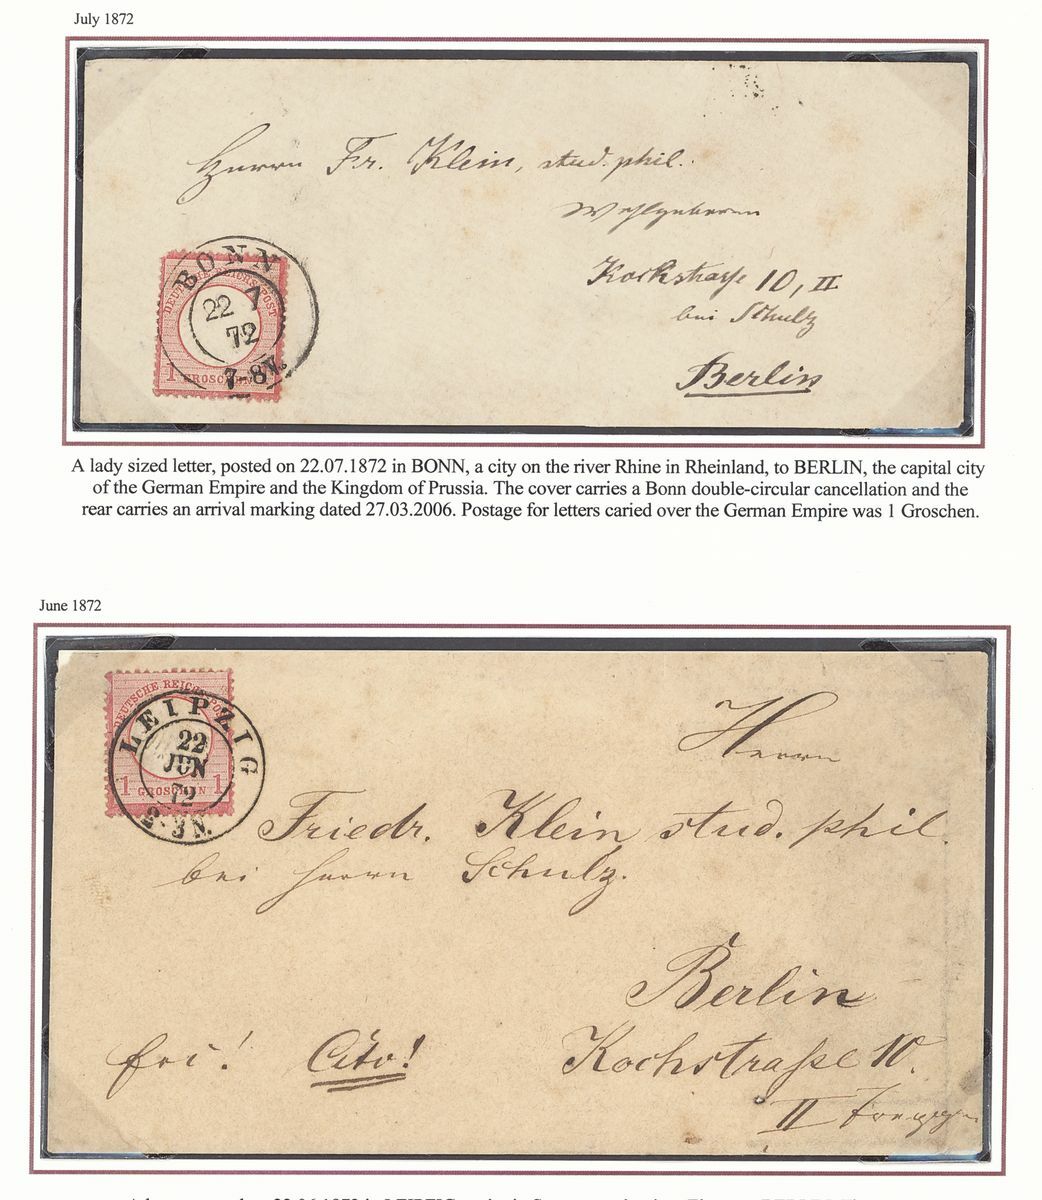 July 1872
Herrn Fr. Klein, stud. phil.
Wohlgeboren
Kochstraße 10, II
bei Schulz
Berlin
BONN
22 7
72
7-8N.
DEUTSCHE REICHS-POST
1 GROSCHEN
A lady sized letter, posted on 22.07.1872 in BONN, a city on the river Rhine in Rheinland, to BERLIN, the capital city
of the German Empire and the Kingdom of Prussia. The cover carries a Bonn double-circular cancellation and the
rear carries an arrival marking dated 27.03.2006. Postage for letters caried over the German Empire was 1 Groschen.
June 1872
DEUTSCHE REICHS-POST
1 GROSCHEN 1
LEIPZIG
22
JUN
72
2-3N.
Herrn
Friedr. Klein stud. phil.
bei Herrn Schulz.
Berlin
fr! Cito! Kochstraße 10.
II